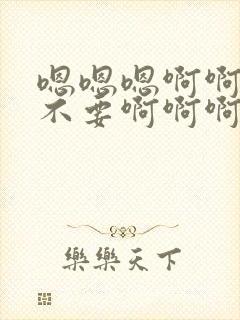 嗯嗯嗯啊啊
不要啊啊啊
樂樂天下